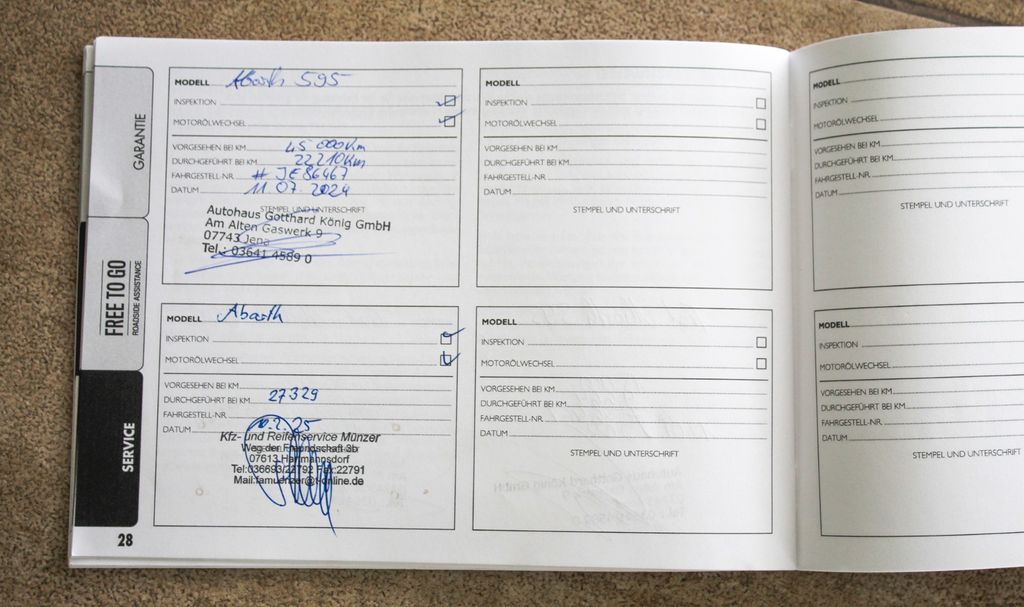 GARANTIE
FREE TO GO
ROADSIDE ASSISTANCE
SERVICE
28
MODELL Abarth 595
INSPEKTION
MOTORÖLWECHSEL
VORGESEHEN BEI KM 45 000Km
DURCHGEFÜHRT BEI KM 22210Km
FAHRGESTELL-NR. # JE86467
DATUM 11.07.2024
STEMPEL UND UNTERSCHRIFT
Autohaus Gotthard König GmbH
Am Alten Gaswerk 9
07743 Jena
Tel.: 03641 4589 0
MODELL Abarth
INSPEKTION
MOTORÖLWECHSEL
VORGESEHEN BEI KM
DURCHGEFÜHRT BEI KM 27329
FAHRGESTELL-NR.
DATUM 10.2.25
Kfz- und Reifenservice Münzer
Weg der Freundschaft 3b
07613 Hartmannsdorf
Tel:036693/22792 Fax:22791
Mail:famuenzer@t-online.de
MODELL
INSPEKTION
MOTORÖLWECHSEL
VORGESEHEN BEI KM
DURCHGEFÜHRT BEI KM
FAHRGESTELL-NR.
DATUM
STEMPEL UND UNTERSCHRIFT
MODELL
INSPEKTION
MOTORÖLWECHSEL
VORGESEHEN BEI KM
DURCHGEFÜHRT BEI KM
FAHRGESTELL-NR.
DATUM
STEMPEL UND UNTERSCHRIFT
MODELL
INSPEKTION
MOTORÖLWECHSEL
VORGESEHEN BEI KM
DURCHGEFÜHRT BEI KM
FAHRGESTELL-NR.
DATUM
STEMPEL UND UNTERSCHRIFT
MODELL
INSPEKTION
MOTORÖLWECHSEL
VORGESEHEN BEI KM
DURCHGEFÜHRT BEI KM
FAHRGESTELL-NR.
DATUM
STEMPEL UND UNTERSCHRIFT